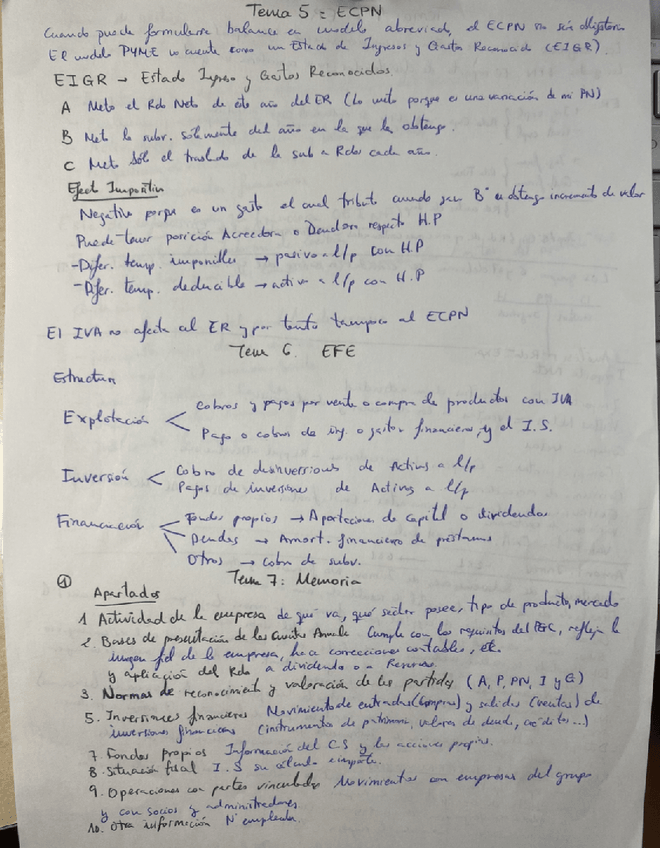 Tema 5: ECPN
Cuando puede formularse balance en modelo abreviado, el ECPN no será obligatorio
El modelo PYME no cuenta como un Estado de Ingresos y Gastos Reconocido (EIGR).
EIGR → Estado Ingreso y Gastos Reconocidos.
A Meto el Rdo Neto de este año del ER (Lo meto porque es una variación de mi PN)
B Meto la subv. solamente del año en la que la obtengo.
C Meto sólo el traslado de la sub a Rdos cada año.
Efecto Impositivo
Negativo porque es un gasto el cual tributo cuando sea Bº se obtenga incremento de valor
Puede tener posición Acreedora o Deudora respecto H.P
- Difer. temp. imponibles → pasivo a l/p con H.P
- Difer. temp. deducible → activo a l/p con H.P
El IVA no afecta al ER y por tanto tampoco al ECPN
Tema 6. EFE
Estructura
Explotación < Cobros y pagos por venta o compra de productos con IVA
Pago o cobro de ing. o gastos financieros, y el I.S.
Inversión < Cobro de desinversiones de Activos a l/p
Pagos de inversiones de Activos a l/p
Financiación < Fondos propios → Aportaciones de capital o dividendos
Deudas → Amort. financiera de préstamos
Otros → Cobro de subv.
① Tema 7: Memoria
Apartados
1 Actividad de la empresa de qué va, qué sector posee, tipo de producto, mercado
2. Bases de presentación de las Cuentas Anuales Cumple con los requisitos del PGC, refleja la
imagen fiel de la empresa, hace correcciones contables, etc.
y aplicación del Rdo a dividendo o a Reservas
3. Normas de reconocimiento y valoración de las partidas (A, P, PN, I y G)
5. Inversiones financieras Movimiento de entradas (compras) y salidas (ventas) de
inversiones financieras (instrumentos de patrimonio, valores de deuda, créditos...)
7. Fondos propios Información del C.S y las acciones propias.
8. Situación fiscal I.S su cálculo e importe.
9. Operaciones con partes vinculadas Movimientos con empresas del grupo
y con socios y administradores
10. Otra información Nº empleados.